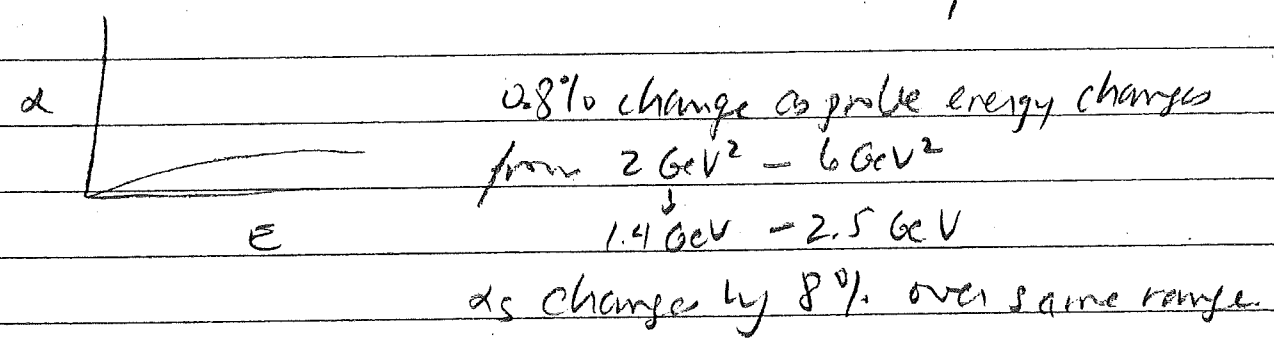 α
0.8% change as probe energy changes
from 2 GeV² – 6 GeV²
↓
1.4 GeV – 2.5 GeV
E
αs changes by 8% over same range.